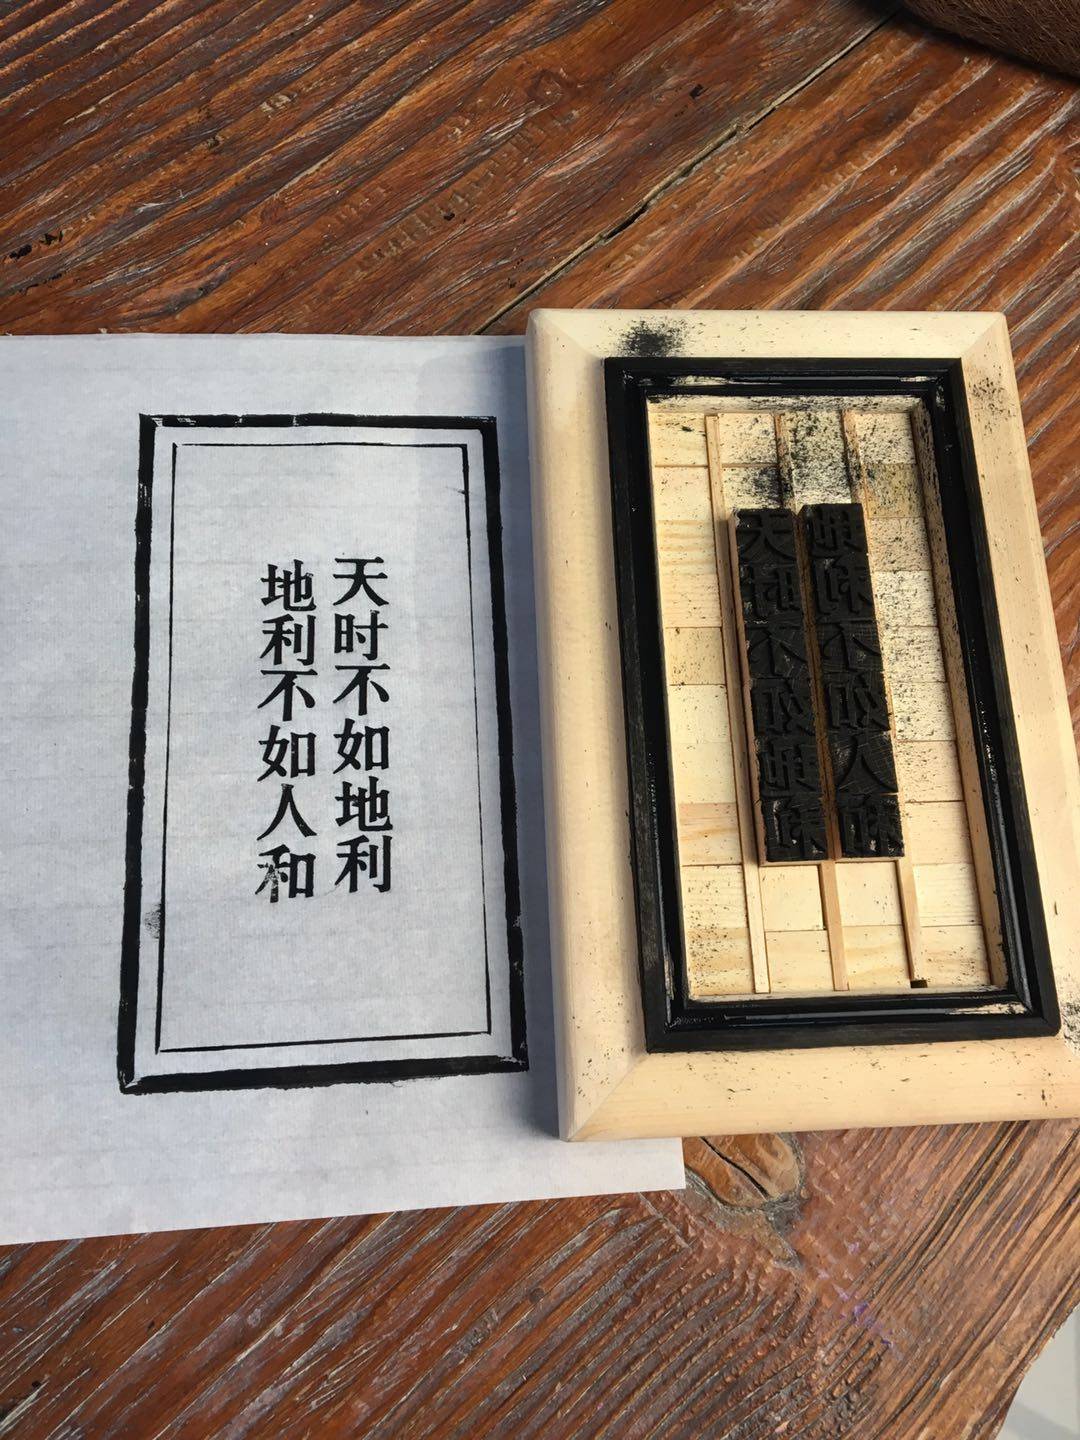 天时不如地利
地利不如人和